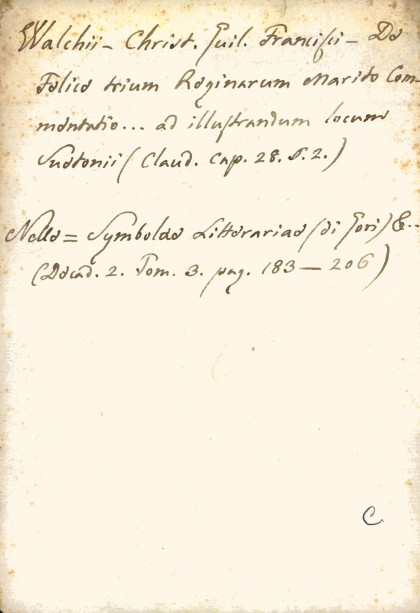 Walchii - Christ. Guil. Francisci - De
Felice trium Reginarum Marito Com-
mentatio... ad illustrandum locum
Suetonii (Claud. cap. 28. §. 2.)
Nelle = Symbolae Litterariae (di Gori) &..
(Decad. 2. Tom. 3. pag. 183 — 206)
C